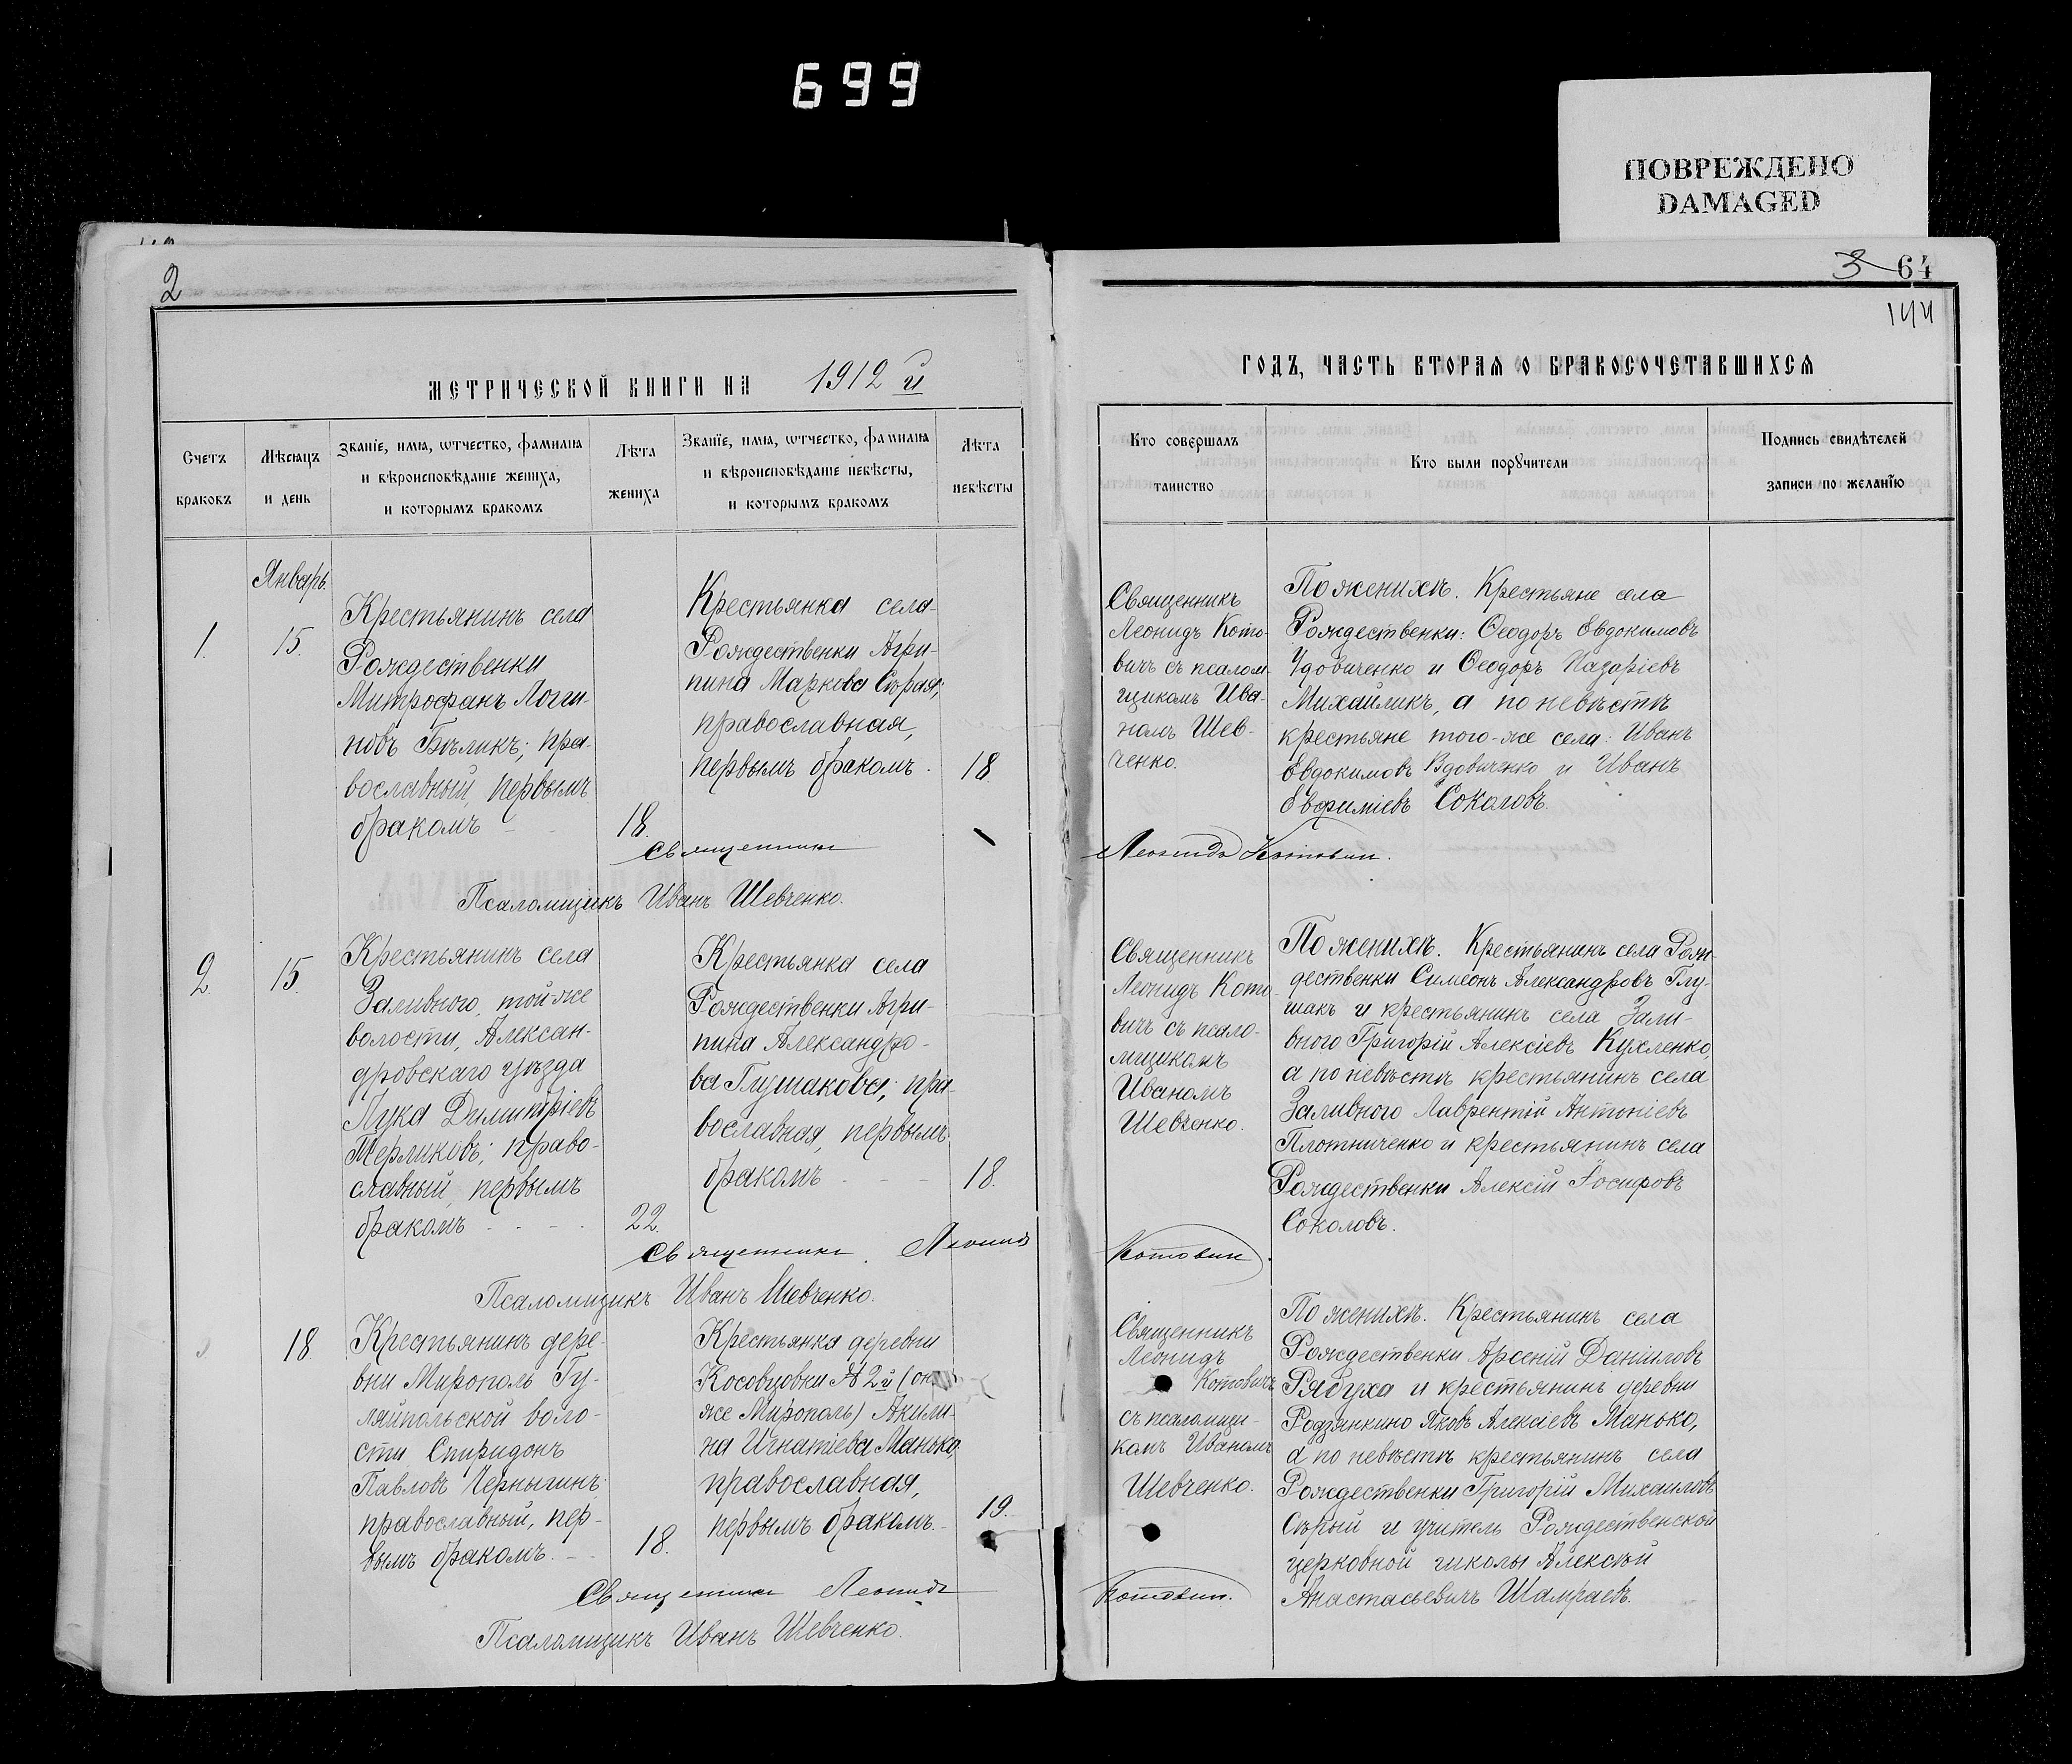 699
ПОВРЕЖДЕНО
DAMAGED
2
3 64
144
МЕТРИЧЕСКОЙ КНИГИ НА 1912 й
ГОДЪ, ЧАСТЬ ВТОРАЯ О БРАКОСОЧЕТАВШИХСЯ
Счетъ
браковъ
Мѣсяцъ
и день
Званіе, имя, ѡтчество, фамилія
и вѣроисповѣданіе жениха,
и которымъ бракомъ
Лѣта
жениха
Званіе, имя, ѡтчество, фамилія
и вѣроисповѣданіе невѣсты,
и которымъ бракомъ
Лѣта
невѣсты
Кто совершалъ
таинство
Кто были порꙋчители
Подпись свидѣтелей
записи по желанїю
Январь.
1.
15.
Крестьянинъ села
Рождественки
Митрофанъ Логги-
новъ Бѣликъ; пра-
вославный, первымъ
бракомъ
18.
Крестьянка села
Рождественки Агри-
пина Маркова Сѣрая;
православная,
первымъ бракомъ.
18
Священникъ
Леонидъ Кото-
вичъ съ псалом-
щикомъ Ива-
номъ Шев-
ченко.
По женихѣ. Крестьяне села
Рождественки: Ѳеодоръ Евдокимовъ
Удовиченко и Ѳеодоръ Назаріевъ
Михайликъ, а по невѣстѣ
крестьяне того-же села: Иванъ
Евдокимовъ Вдовиченко и Иванъ
Евфиміевъ Соколовъ.
Священникъ Леонидъ Котовичъ.
Псаломщикъ Иванъ Шевченко.
2.
15.
Крестьянинъ села
Заливного, той же
волости, Алексан-
дровскаго уѣзда
Лука Димитріевъ
Мерликовъ; право-
славный, первымъ
бракомъ
22.
Крестьянка села
Рождественки Агри-
пина Александро-
ва Глушакова; пра-
вославная, первымъ
бракомъ
18.
Священникъ
Леонидъ Кото-
вичъ съ псало-
мщикомъ
Иваномъ
Шевченко.
По женихѣ. Крестьянинъ села Рож-
дественки Симеонъ Александровъ Глу-
шакъ и крестьянинъ села Зали-
вного Григорій Алексіевъ Кухленко,
а по невѣстѣ крестьянинъ села
Заливного Лаврентій Антоніевъ
Плотниченко и крестьянинъ села
Рождественки Алексій Іосифовъ
Соколовъ.
Священникъ Леонидъ Котовичъ.
Псаломщикъ Иванъ Шевченко.
18.
Крестьянинъ дере-
вни Мирополь Гу-
ляйпольской воло-
сти Спиридонъ
Павловъ Чернышинъ;
православный, пер-
вымъ бракомъ.
18.
Крестьянка деревни
Косовцовки № 2й (она
же Мирополь) Акили-
на Игнатіева Манько,
православная,
первымъ бракомъ.
19.
Священникъ
Леонидъ
Котовичъ
съ псаломщи-
комъ Иваномъ
Шевченко.
По женихѣ. Крестьянинъ села
Рождественки Арсеній Даніиловъ
Рябуха и крестьянинъ деревни
Родзянкино Яковъ Алексіевъ Манько,
а по невѣстѣ крестьянинъ села
Рождественки Григорій Михаиловъ
Сѣрый и учитель Рождественской
церковной школы Алексѣй
Анастасьевичъ Шамраевъ.
Священникъ Леонидъ Котовичъ.
Псаломщикъ Иванъ Шевченко.